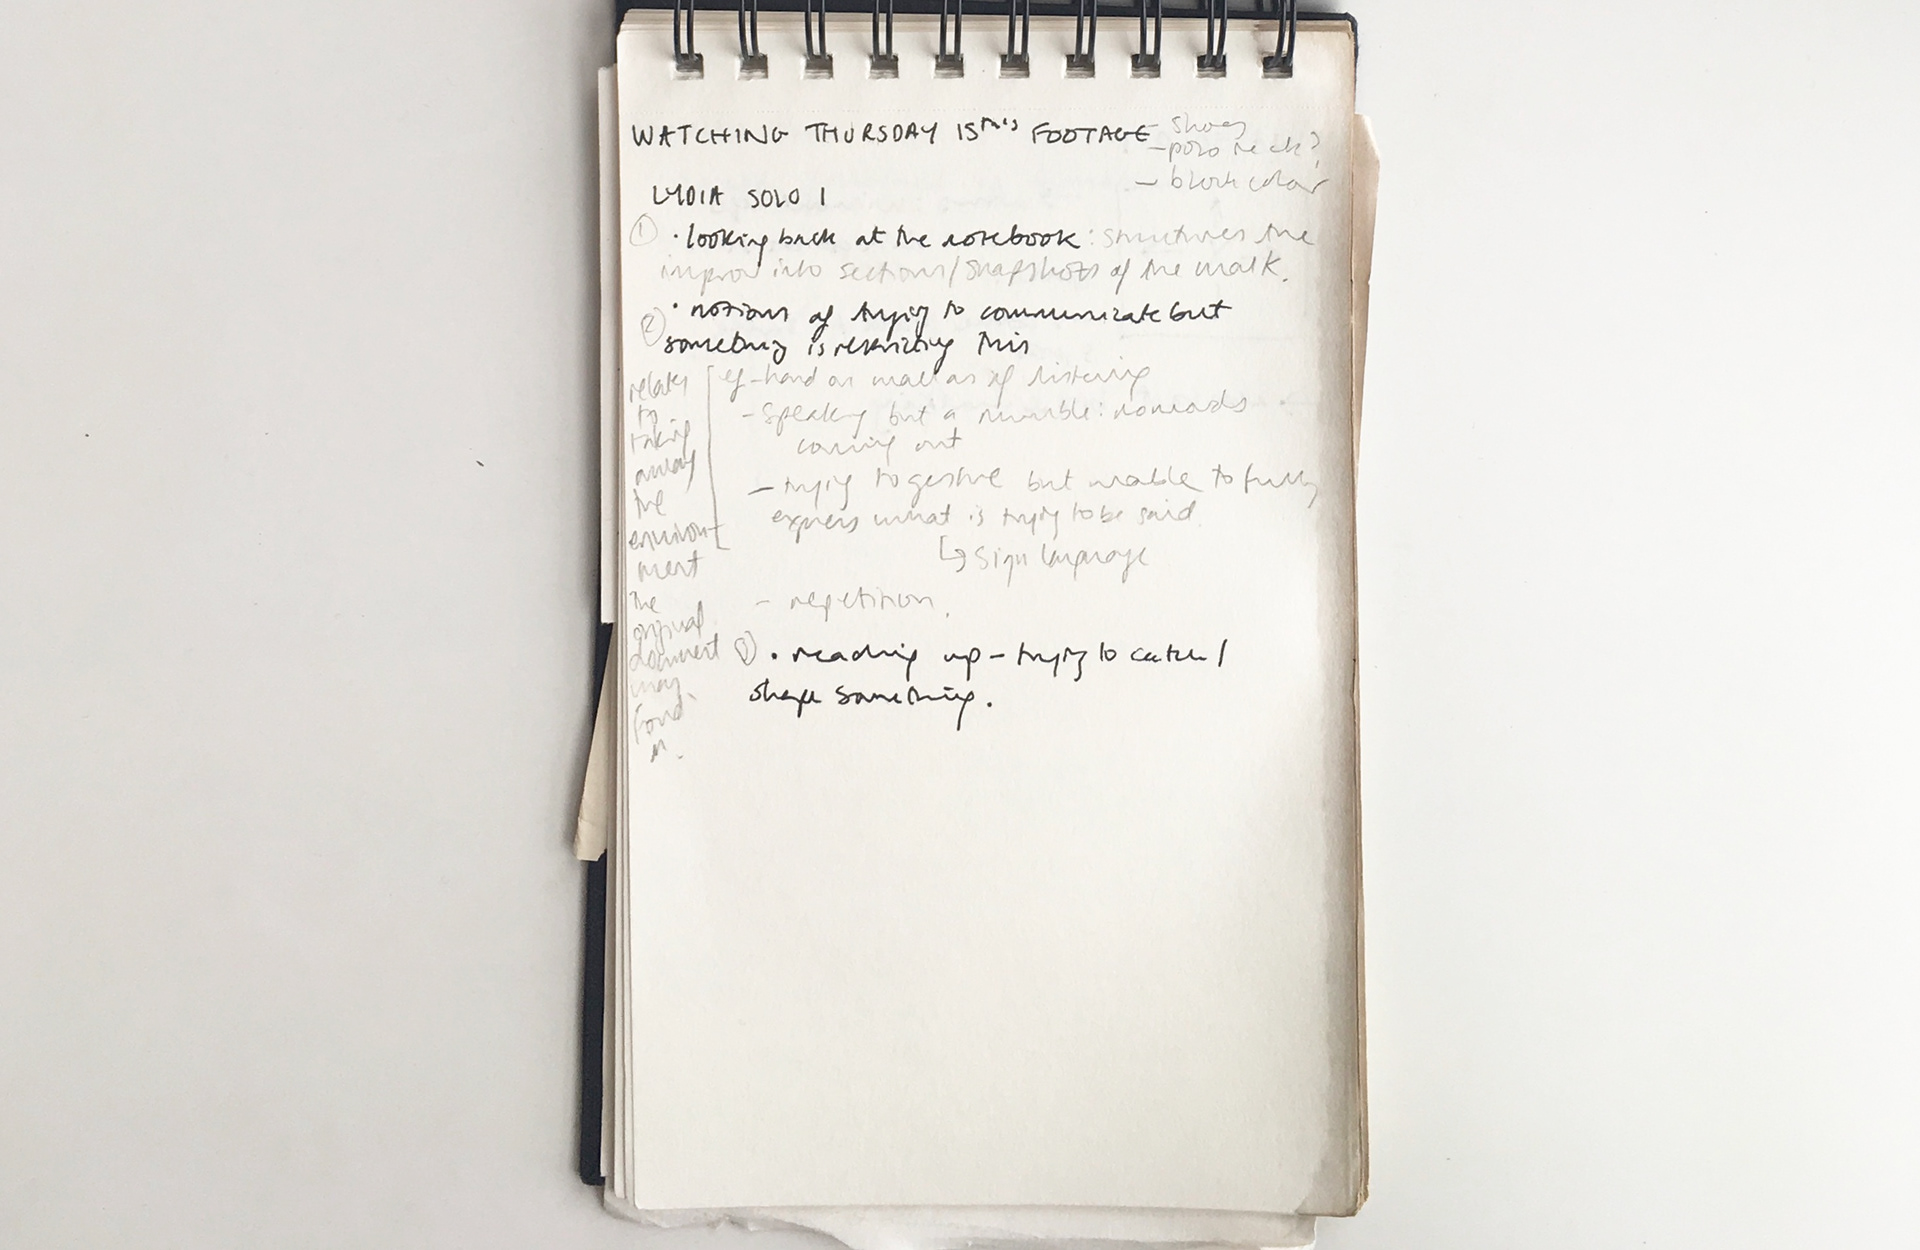 WATCHING THURSDAY 15TH'S FOOTAGE
- shoes
- polo neck?
- block colour
LYDIA SOLO 1
① · looking back at the notebook: structures the
improv into sections/snapshots of the walk.
② · notions of trying to communicate but
something is restricting this
eg - hand on wall as if listening
- Speaking but a mumble: no words
coming out
- trying to gesture but unable to fully
express what is trying to be said.
↳ sign language
- repetition.
relates
to
taking
away
the
environ-
ment
the
original
document
was
found
in.
③ · reaching up - trying to catch /
shape something.